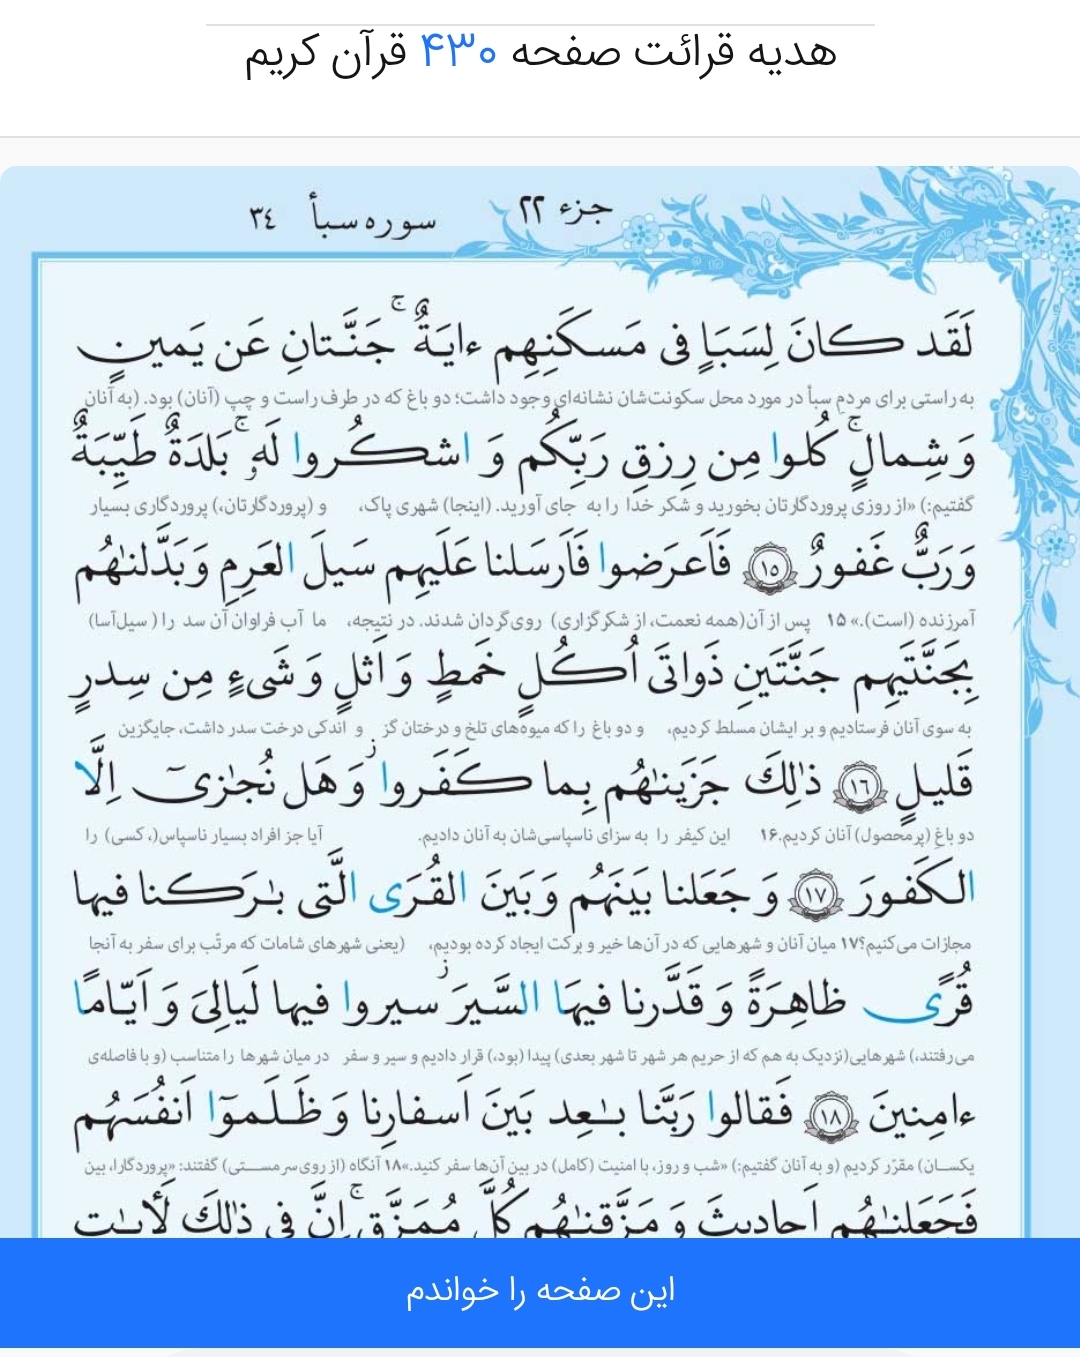 هدیه قرائت صفحه ۴۳۰ قرآن کریم
جزء ۲۲
سوره سبأ ٣٤
لَقَد كانَ لِسَبَإٍ فی مَسكَنِهِم ءايَةٌ ۚ جَنَّتانِ عَن يَمينٍ
به راستی برای مردم سبأ در مورد محل سکونت‌شان نشانه‌ای وجود داشت؛ دو باغ که در طرف راست و چپ (آنان) بود. (به آنان
وَ شِمالٍ ۚ كُلوا مِن رِزقِ رَبِّكُم وَ اشكُروا لَهو ۚ بَلدَةٌ طَيِّبَةٌ
گفتیم:) «از روزی پروردگارتان بخورید و شکر خدا را به جای آورید. (اینجا) شهری پاک، و (پروردگارتان،) پروردگاری بسیار
وَ رَبٌّ غَفورٌ ١٥ فَاَعرَضوا فَاَرسَلنا عَلَيهِم سَيلَ العَرِمِ وَ بَدَّلنٰهُم
آمرزنده (است).» ۱۵ پس از آن (همه نعمت، از شکرگزاری) روی‌گردان شدند. در نتیجه، ما آب فراوان آن سد را (سیل‌آسا)
بِجَنَّتَيهِم جَنَّتَينِ ذَواتَی اُكُلٍ خَمطٍ وَ اَثلٍ وَ شَیءٍ مِن سِدرٍ
به سوی آنان فرستادیم و بر ایشان مسلط کردیم، و دو باغ را که میوه‌های تلخ و درختان گز و اندکی درخت سدر داشت، جایگزین
قَليلٍ ١٦ ذٰلِكَ جَزَينٰهُم بِما كَفَروا ۖ وَ هَل نُجٰزی اِلَّا
دو باغِ (پرمحصول) آنان کردیم.۱۶ این کیفر را به سزای ناسپاسی‌شان به آنان دادیم. آیا جز افراد بسیار ناسپاس(، کسی) را
الكَفورَ ١٧ وَ جَعَلنا بَينَهُم وَ بَينَ القُرَی الَّتی بٰرَكنا فيها
مجازات می‌کنیم؟۱۷ میان آنان و شهرهایی که در آن‌ها خیر و برکت ایجاد کرده بودیم، (یعنی شهرهای شامات که مرتّب برای سفر به آنجا
قُرًی ظاهِرَةً وَ قَدَّرنا فيهَا السَّيرَ ۖ سيروا فيها لَيالِیَ وَ اَيّامًا
می‌رفتند،) شهرهایی (نزدیک به هم که از حریم هر شهر تا شهر بعدی) پیدا (بود،) قرار دادیم و سیر و سفر در میان شهرها را متناسب (و با فاصله‌ی
ءامِنينَ ١٨ فَقالوا رَبَّنا بٰعِد بَينَ اَسفارِنا وَ ظَلَموٓا اَنفُسَهُم
یکسان) مقرّر کردیم (و به آنان گفتیم:) «شب و روز، با امنیت (کامل) در بین آن‌ها سفر کنید.»۱۸ آنگاه (از روی سرمستی) گفتند: «پروردگارا، بین
فَجَعَلنٰهُم اَحاديثَ وَ مَزَّقنٰهُم كُلَّ مُمَزَّقٍ ۚ اِنَّ فی ذٰلِكَ لَأٰيٰت
این صفحه را خواندم